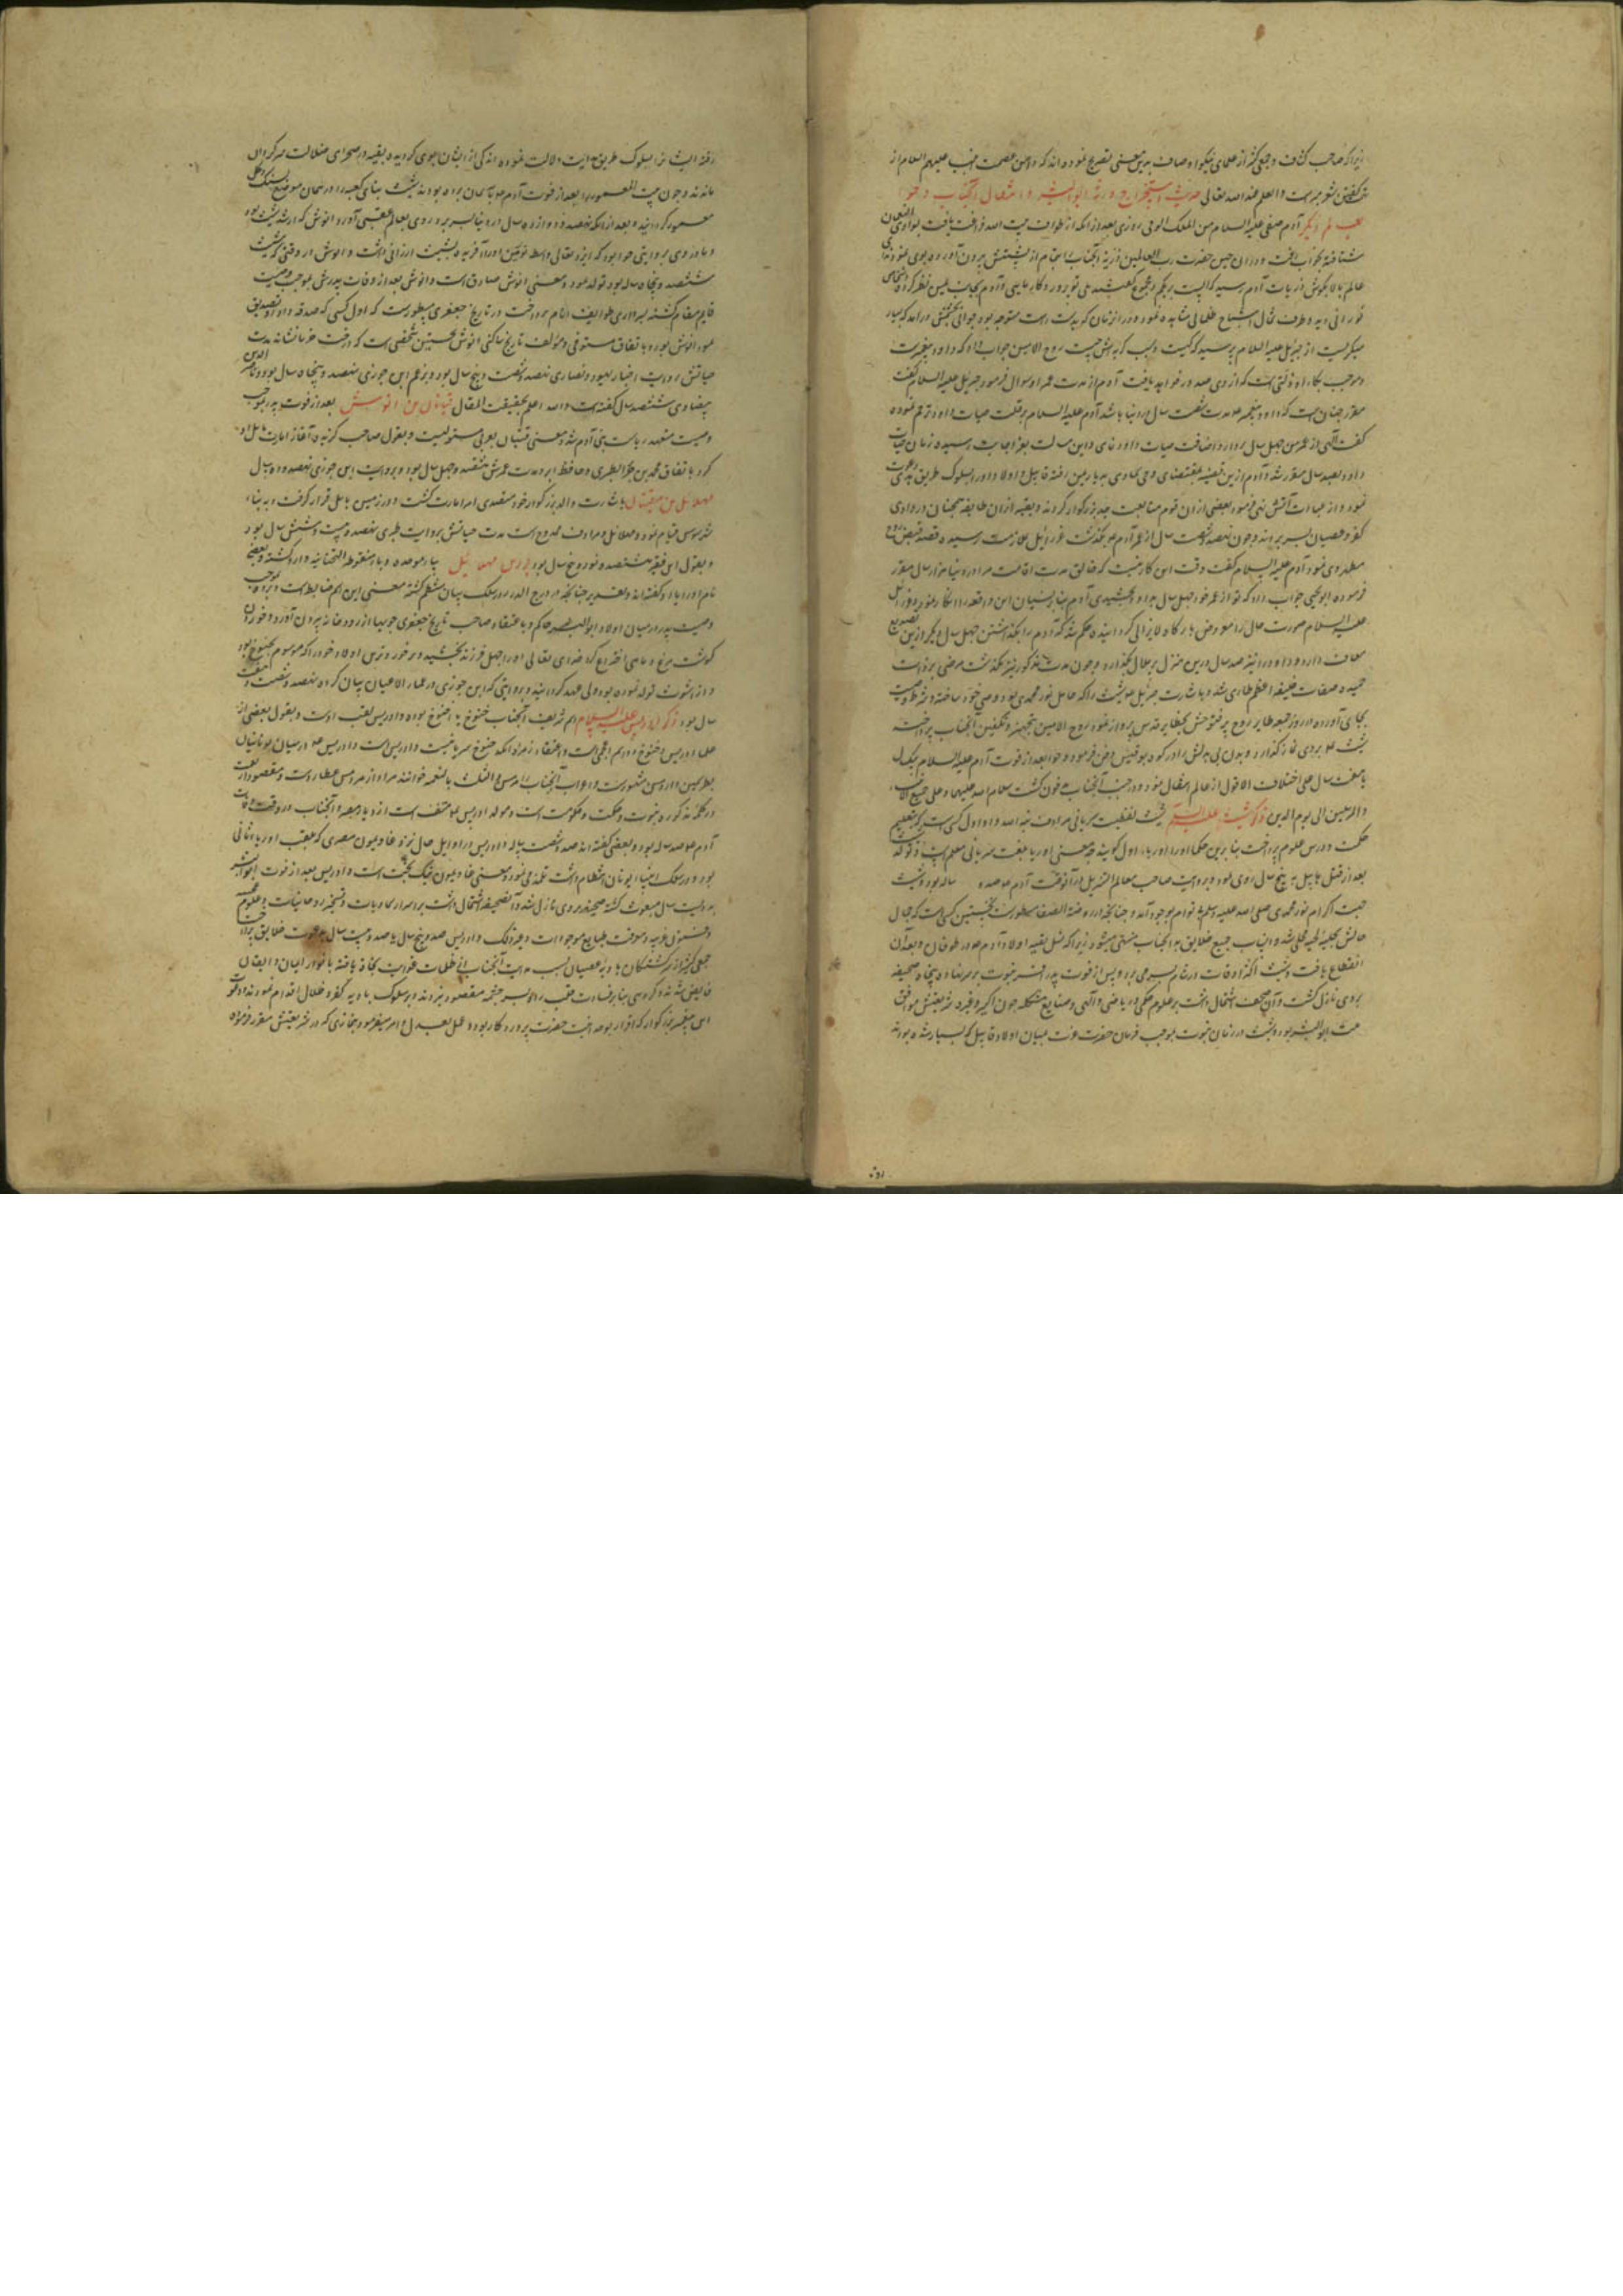 زیرا که صاحب کشاف و جمعی کثیر از علمای نیکو اوصاف بدین معنی تصریح نموده‌اند که دامن عصمت انبیا علیهم السلام از
گفتن شعر بریست و العلم عند الله تعالی حدیث استخراج ذریه ابوالبشر و انتقال آنجناب و حوا
بعالم دیگر آدم صفی علیه السلام من الملک الوفی روزی بعد از آنکه از طواف بیت الله فراغت یافت بوادی نعمان
شتافته بخواب رفت و در آن حین حضرت رب العالمین ذریه آنجناب را بتمام از پشتش بیرون آورده
عالم بالا بگوش ذریات آدم رسید که الست بربکم مجموع گفتند بلی تو پروردگار مایی و آدم بجانب یمین نظر کرده
نورانی دید و طرف شمال اشباح ظلمانی مشاهده نمود و در آن زمان که بدست راست متوجه بود جوانی بچشمش درآمد که بسیار
میگریست از جبرئیل علیه السلام پرسید که کیست و سبب گریه‌اش چیست روح الامین جواب داد که داود پیغمبرست
و موجب بکاء او زلتی است که از وی صدور خواهد یافت آدم از مدت عمر او سوال فرمود جبرئیل علیه السلام گفت
مقرر چنانست که داود پیغمبر مدت شصت سال در دنیا باشد آدم علیه السلام بر قلت حیات داود ترحم نموده
گفت الهی از عمر من چهل سال بردار و اضافت حیات داود نمای و این مسالت بعز اجابت رسیده زمان حیات
داود بصد سال مقرر شد و آدم ازین قضیه بمقتضای وحی سماوی بدیار یمن رفته قابیل و اولاد او را بسلوک طریق هدی دعوت
نمود و از عبادت آتش نهی فرمود بعضی از آن قوم متابعت جد بزرگوار کردند و بقیه از آن طایفه همچنان در وادی
کفر و عصیان بسر بردند و چون نهصد و شصت سال از عمر آدم بگذشت عزرائیل بملازمت رسیده قصد قبض روح
مطهر وی نمود آدم علیه السلام گفت وقت این کار نیست که خالق مدت اقامت مرا در دنیا هزار سال مقرر
فرموده ابویحیی جواب داد که تو از عمر خود چهل سال بداود بخشیدی آدم بنابر نسیان این واقعه را انکار نمود و عزرائیل
علیه السلام صورت حال را معروض بارگاه لایزالی گردانیده حکم شد که آدم را بگذاشتن چهل سال دیگر ازین تصدیع
معاف دارد و داود را نیز صد سال درین منزل پرملال بگذارد و چون مدت مذکور نیز بگذشت مرضی بر ذات
حمیده صفات خلیفه اعظم طاری شد و باشارت جبرئیل شیث را که حامل نور محمدی بود وصی خود ساخته و شرط وصیت
بجای آورده در روز جمعه طایر روح پرفتوحش بحظایر قدس پرواز نمود و روح الامین بتجهیز و تکفین آنجناب پرداخت
شیث بر وی نماز گذارد و بدن بی‌بدلش را در کوه بوقبیس دفن فرمود و حوا بعد از فوت آدم علیه السلام بیک سال
یا هفت سال علی اختلاف الاقوال از عالم انتقال نمود و در جنب آنجناب مدفون گشت سلام الله علیهما و علی جمیع الانبیاء
و المرسلین الی یوم الدین ذکر شیث علیه السلام شیث لفظیست سریانی مرادف هبة الله و او اول کسی است که بتعلیم
حکمت و درس علوم پرداخت بنابرین حکما او را اوریاء اول گویند چه معنی اوریا بلغت سریانی معلم است و تولد
بعد از قتل هابیل به پنج سال روی نمود و بروایت صاحب معالم التنزیل در آنوقت آدم صد ساله بود و شیث
جهت اکرام نور محمدی صلی الله علیه و سلم نه توام بوجود آمد و چنانچه در روضة الصفا مسطورست نخستین کسی است که جمال
حالش بحلیه لحیه محلی شد و انساب جمیع خلایق به آنجناب منتهی میشود زیرا که نسل بقیه اولاد آدم در طوفان و بعد از آن
انقطاع یافت و شیث اکثر اوقات در شام بسر می‌برد و پس از فوت پدر افسر نبوت بر سر نهاده پنجاه صحیفه
بر وی نازل گشت و آن صحف اشتمال داشت بر علوم حکمی و ریاضی و الهی و صنایع مشکله چون اکسیر و غیره شریعتش موافق
ملت ابوالبشر بود و شیث در زمان نبوت بموجب فرمان حضرت عزت میان اولاد قابیل که بسیار شده بودند
رفته ایشان را بسلوک طریق هدایت دلالت نمود اندکی از ایشان گرویده بقیه در صحرای ضلالت سرگردان
ماندند و چون بیت المعمور را بعد از فوت آدم به آسمان برده بودند شیث بنای کعبه را در همان موضع بسنگ و گل
معمور گردانید و بعد از آنکه نهصد و دوازده سال در دنیا بسر برد روی بعالم عقبی آورد و انوش که ارشد شیث بود
و مادر وی بروایتی حورا بود که ایزد تعالی او را آفریده بشیث ارزانی داشت و انوش در وقتی که شیث
ششصد و پنجاه ساله بود تولد نمود و معنی انوش صادق است و انوش بعد از وفات پدرش بموجب وصیت
قایم مقام گشته بسرداری طوایف انام پرداخت در تاریخ جعفری مسطورست که اول کسی که صدقه داد و تصدیق
نمود انوش بود و باتفاق مستوفی و مؤلف تاریخ بناکتی انوش نخستین شخصی است که درخت خرما نشاند مدت
حیاتش بروایت اخبار یهود و نصاری نهصد و شصت و پنج سال بود و بزعم ابن جوزی نهصد و پنجاه سال بود و ناصر الدین
بیضاوی ششصد سال گفته است و الله اعلم بحقیقت المقال قینان بن انوش بعد از فوت پدر بموجب
وصیت متعهد ریاست بنی آدم شد و معنی قینان بعربی مستولیست و بقول صاحب گزیده آغاز عمارت بابل او
کرد باتفاق محمد بن جریر الطبری و حافظ ابرو مدت عمرش هشتصد و چهل سال بود و بروایت ابن جوزی نهصد و ده سال
مهلائیل بن قینان باشارت والد بزرگوار خود متصدی امر امارت گشت و در زمین بابل قرار گرفت و به بناء
شهر سوس قیام نمود و مهلائیل مرادف ممدوح است مدت حیاتش بروایت طبری نهصد و بیست و شش سال بود
و بقول ابن هشتصد و نود و پنج سال بود یرد بن مهلائیل بباء موحده و یاء منقوطه التحتانیه وارد گشته و بعضی
نام او را یارد گفته‌اند و چنانچه در درج الدرر در سلک بیان منتظم گشته معنی این اسم ضابط است و یرد بموجب
وصیت پدر در میان اولاد ابوالبشر حاکم و باعتقاد صاحب تاریخ جعفری جویها از رودخانه بیرون آورد و خوردن
گوشت مرغ و ماهی اختراع کرد خدای تعالی او را چهل فرزند بخشید و برد خوردترین اولاد خود را که موسوم بخنوخ بود
و از اشوث تولد نموده بود ولی عهد گردانید و بروایتی که ابن جوزی در عمار الاعیان بیان کرده نهصد و شصت و هفت
سال بود ذکر ادریس علیه السلام اسم شریف آنجناب خنوخ یا اخنوخ بوده و ادریس لقب اوست و بقول بعضی از
علما ادریس و خنوخ هر دو اسم اعجمی است و باعتقاد زمره‌ای آنکه خنوخ سریانیست و ادریس است و ادریس در میان یونانیان
بطرسمین و ارمس مشهورست و اعراب آنجناب را هرمس و المثلث بالنعمه خوانند مراد از هرمس عطاردست و مقصود از نعمت
در کلمه مذکوره نبوت و حکمت و حکومت است و مولد ادریس منف است از دیار مصر و آنجناب در وقت وفات
آدم صد ساله بود و بعضی گفته‌اند صد و شصت ساله و ادریس در اوایل حال نزد غاذیمون مصری که ملقب اوریاء ثانی
بود و در سلک انبیاء یونان انتظام داشت تلمذ می‌نمود و معنی غاذیمون نیک بخت است و ادریس بعد از فوت ابوالبشر
بدویست سال مبعوث گشته سی صحیفه بر وی نازل شد و آن صحیفه اشتمال داشت بر اسرار سماویات و تسخیر روحانیات و علوم
و فنون غریبه و معرفت طبایع موجودات و غیر ذلک و ادریس صد و پنج سال یا صد و بیست سال بدعوت خلایق پرداخت
جمعی کثیر از سرگشتگان بادیه عصیان بسبب هدایت آنجناب از ظلمات غوایت نجات یافته بانوار ایمان و ایقان
فایض شدند و گروهی بنابر ضلالت راه بسرچشمه مقصود نبردند و بسلوک بادیه کفر و ضلال اقدام نمودند و دعوت
این پیغمبر بزرگوار که اقرار بوحدانیت حضرت پروردگار بود و عمل بعدل و امر میفرمود بنمازی که در شریعتش مقرر فرموده